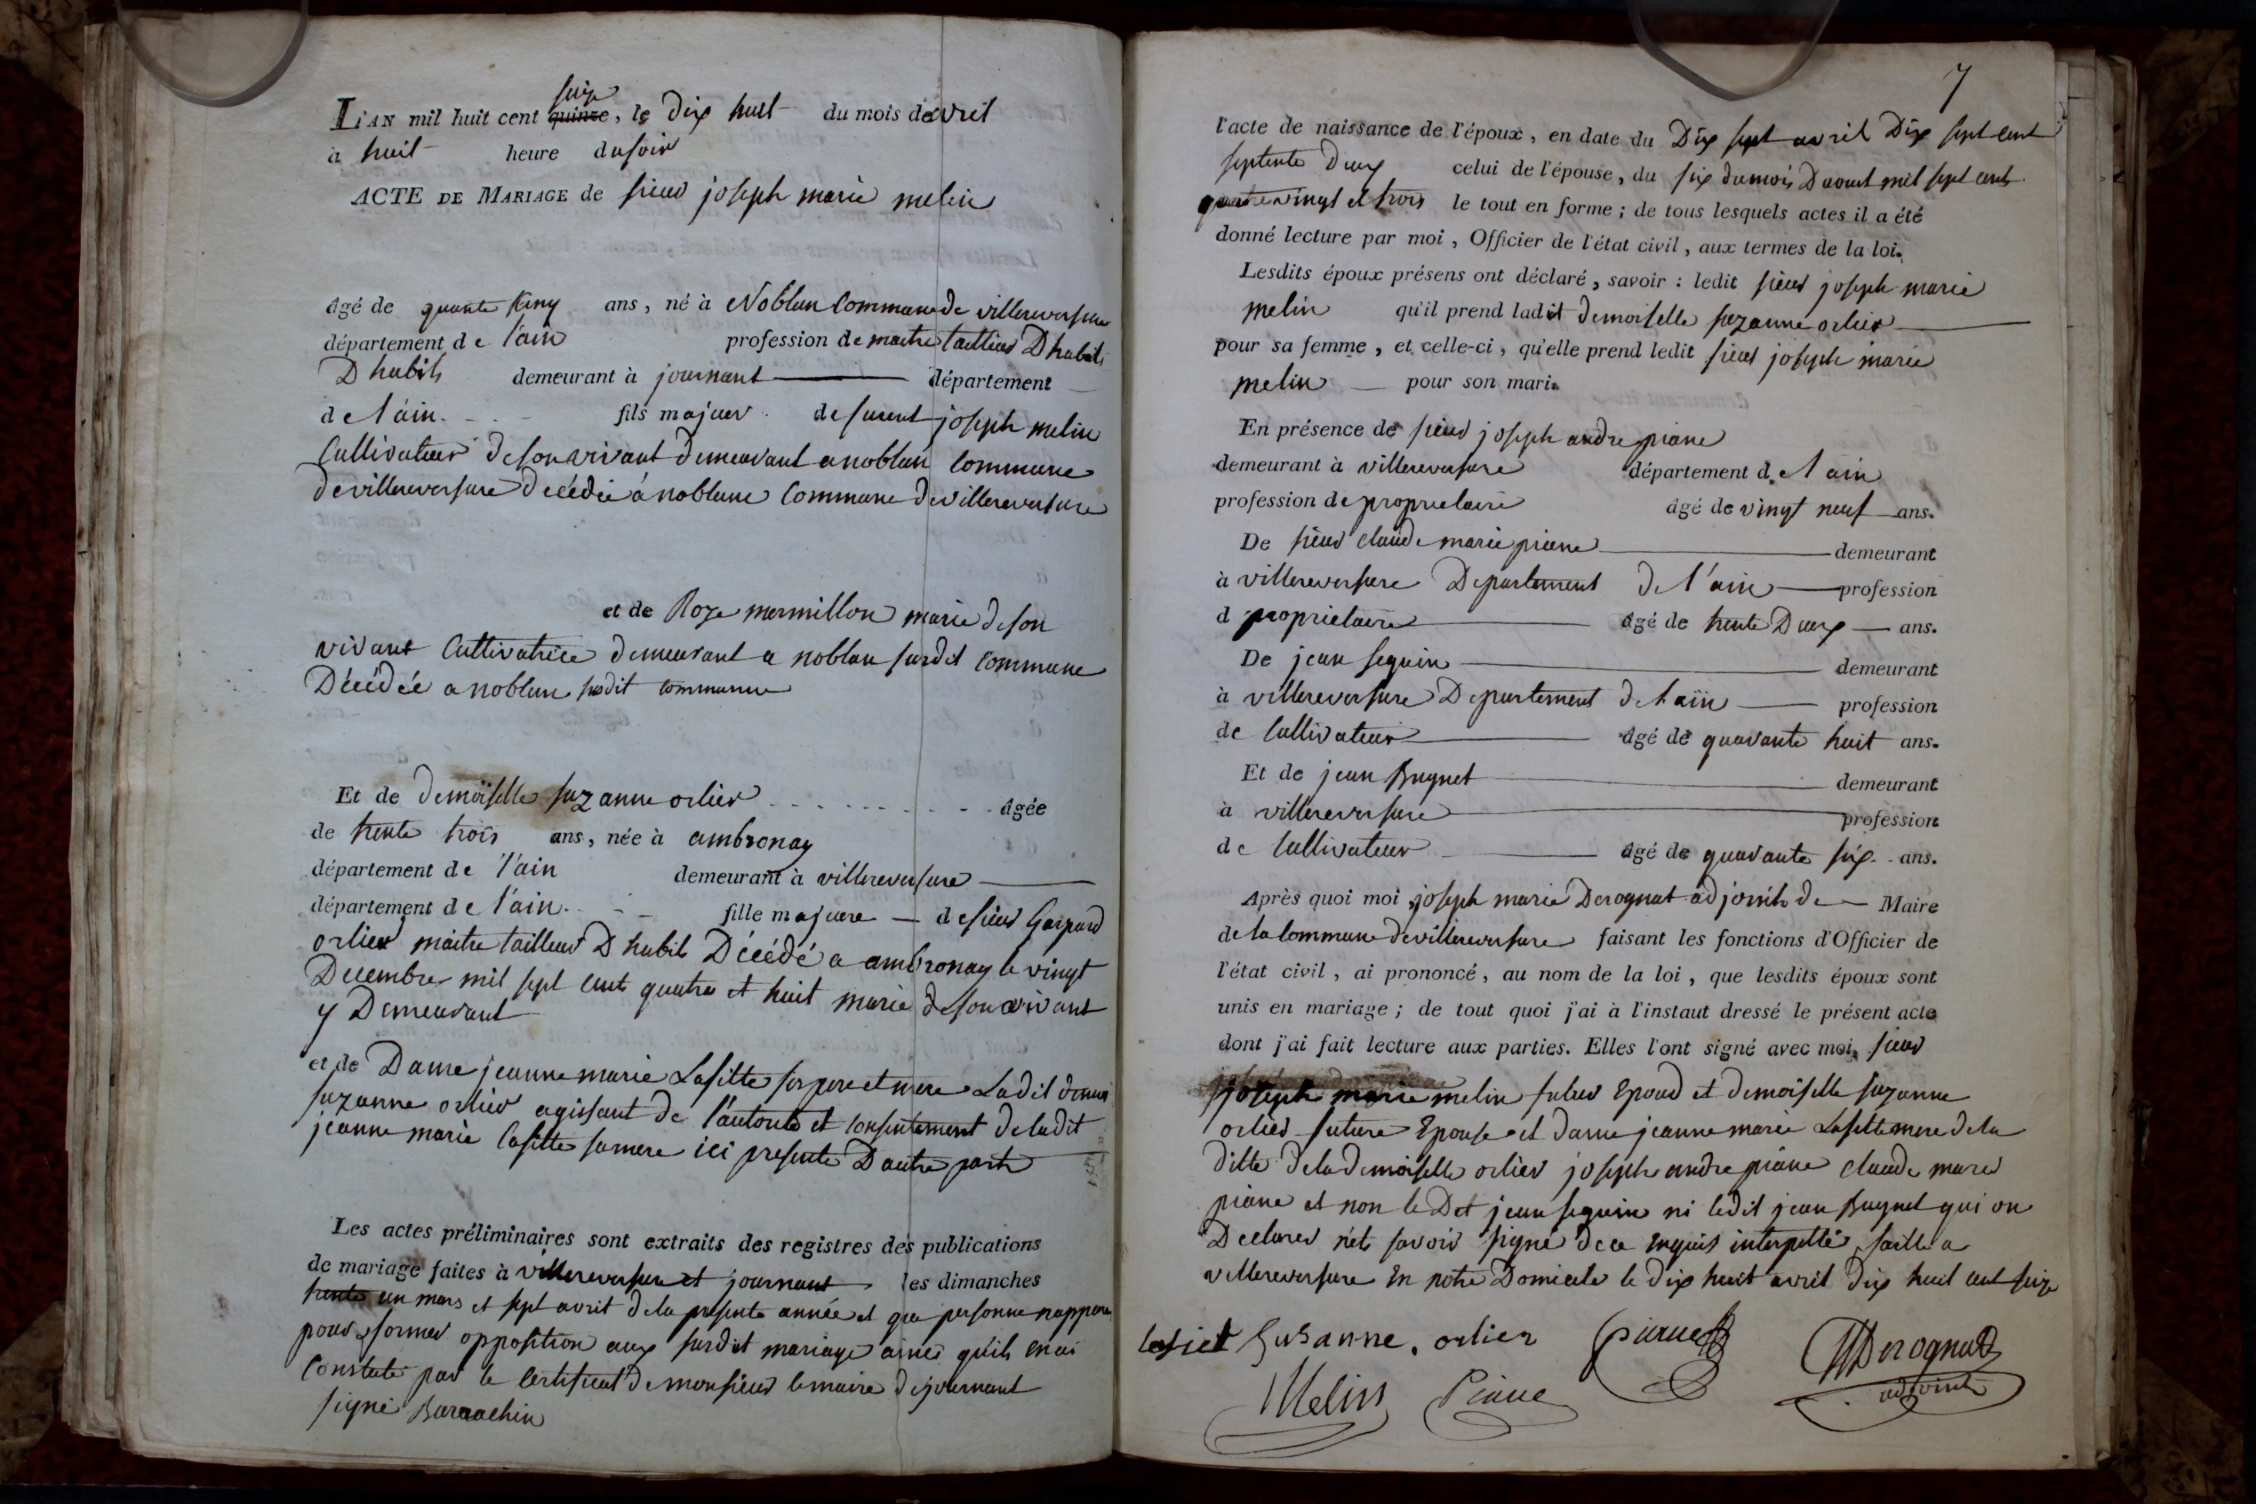 seize
L'AN mil huit cent quinze, le dix huit du mois davril
à huit heure dusoir
ACTE DE MARIAGE de sieur joseph marie melin
âgé de quante ans, né à Noblan Commune de villereversure
département de l'ain profession de maitre taillieur Dhabits
Dhabits demeurant à journant département
de l'ain. fils majeur defunt joseph melin
Cultivateur desonvivant demeurant anoblan Commune
devillereversure decédée ánoblane Commune devillereversure
et de Roze mermillon marie deson
vivant Cultivatrice demeurant a noblan susdit Commune
Décédée anoblan susdit commune
Et de demoiselle suzanne orlier âgée
de trente trois ans, née à ambronay
département de l'ain demeurant à villereversure
département de l'ain. fille majeure desieur Gaspard
orlier maitre tailleur Dhabit Décédé a ambronay le vingt
Decembre mil sept cent quatre et huit marie desonvivant
y Demeurant
et de Dame jeanne marie Lafitte ses pere et mere Ladit
suzanne orlier agissant de l'autorité et consentement deladit
jeanne marie lafitte samere ici presente D'autre part
Les actes préliminaires sont extraits des registres des publications
de mariage faites à villereversure et journant les dimanches
trente un mars et sept avril dela presente année et que personne
pour former opposition aux susdit mariage ainsi qu'il
Constaté par le Certificat de monsieur lemaire dejournant
signé
7
l'acte de naissance de l'époux, en date du Dix sept avril Dix sept cent
septente deux celui de l'épouse, du six dumois Daoust mil sept cents
quatre vingt et trois le tout en forme; de tous lesquels actes il a été
donné lecture par moi, Officier de l'état civil, aux termes de la loi.
Lesdits époux présens ont déclaré, savoir: ledit sieur joseph marie
melin qu'il prend ladit demoiselle suzanne orlier
pour sa femme, et celle-ci, qu'elle prend ledit sieur joseph marie
melin pour son mari.
En présence de sieur joseph andre piane
demeurant à villereversure département de l'ain
profession de proprietaire âgé de vingt neuf ans.
De sieur claude marie piane demeurant
à villereversure Departement de l'ain profession
d proprietaire âgé de trente Deux ans.
De jean seguin demeurant
à villereversure Departement de lain profession
de Cultivateur âgé de quarante huit ans.
Et de jean Buynet demeurant
à villereversure profession
de Cultivateur âgé de quarante six ans.
Après quoi moi joseph marie Derognat adjoint de Maire
de la Commune devillereversure faisant les fonctions d'Officier de
l'état civil, ai prononcé, au nom de la loi, que lesdits époux sont
unis en mariage; de tout quoi j'ai à l'instaut dressé le présent acte
dont j'ai fait lecture aux parties. Elles l'ont signé avec moi, sieur
joseph marie melin futur Epoud et demoiselle suzanne
orlier future Epouse et dame jeanne marie Lafitte mere dela
ditte dela demoiselle orlier joseph andre piane claude marie
piane et non le Dit jean seguin ni ledit jean Buynet qui on
Declarer net savoir signé dece Enquis interpellé, faitte a
villereversure En notre Domicile le dix huit avril dix huit cent seize
Susanne. orlier piane Derognat
Melin Piane adjoint